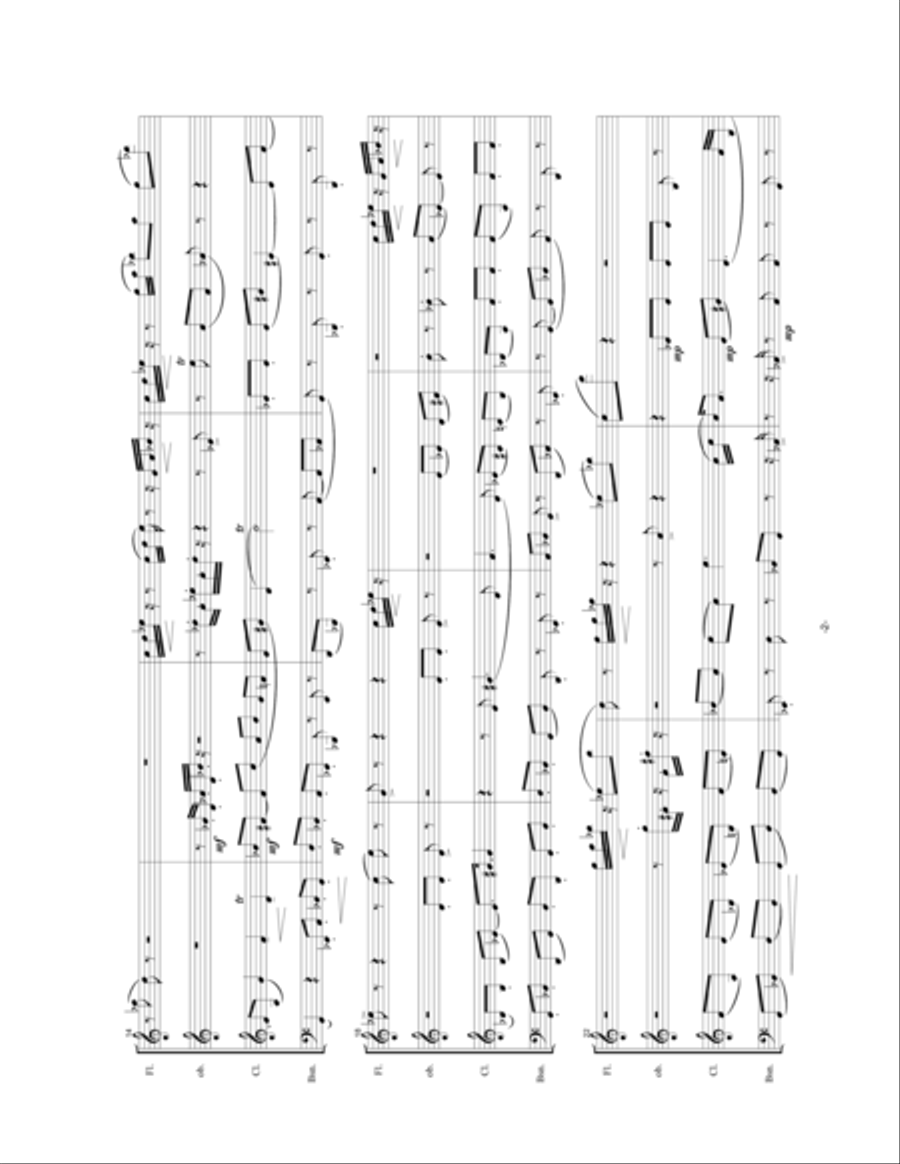 14
Fl.
tr
ob.
mf
tr tr
Cl.
mf
Bsn.
mf
18
Fl.
ob.
Cl.
Bsn.
22
Fl.
ob.
mp
Cl.
mp
Bsn.
mp
-2-